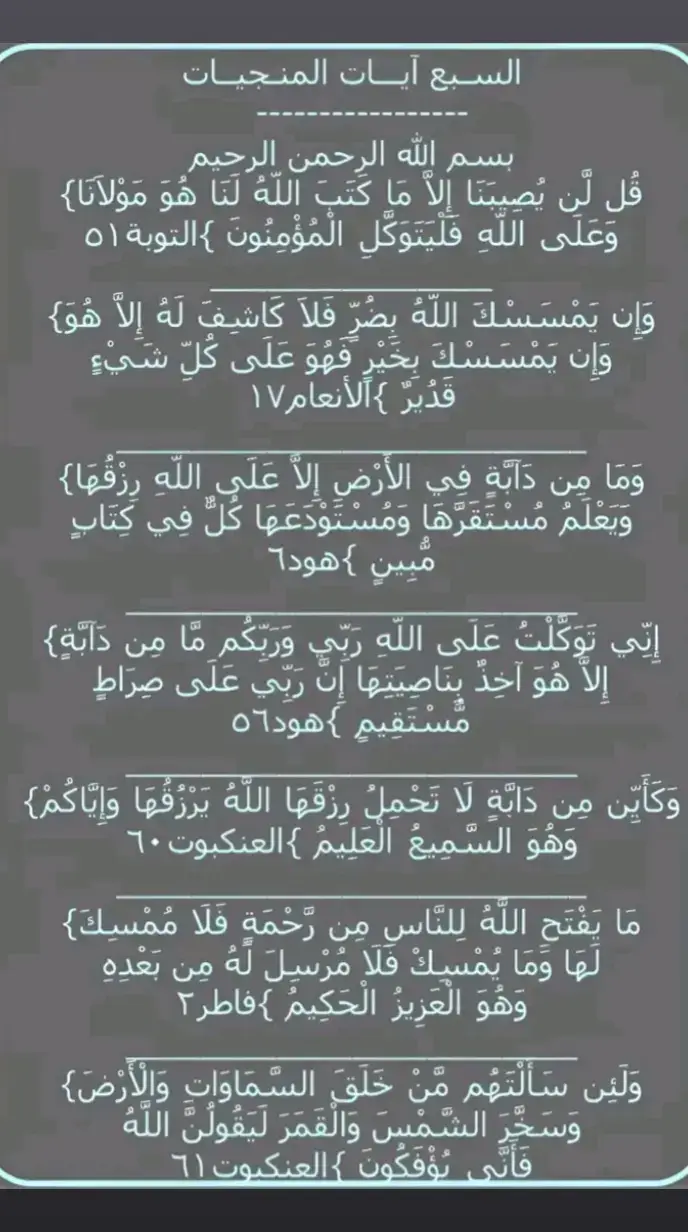 السبع آيـــات المنـجيـات
-----------------
بسم الله الرحمن الرحيم
قُل لَّن يُصِيبَنَا إِلاَّ مَا كَتَبَ اللّهُ لَنَا هُوَ مَوْلاَنَا}
وَعَلَى اللّهِ فَلْيَتَوَكَّلِ الْمُؤْمِنُونَ }التوبة٥١
وَإِن يَمْسَسْكَ اللّهُ بِضُرٍّ فَلاَ كَاشِفَ لَهُ إِلاَّ هُوَ}
وَإِن يَمْسَسْكَ بِخَيْرٍ فَهُوَ عَلَى كُلِّ شَيْءٍ
قَدُيرٌ }الأنعام١٧
وَمَا مِن دَآبَّةٍ فِي الأَرْضِ إِلاَّ عَلَى اللّهِ رِزْقُهَا}
وَيَعْلَمُ مُسْتَقَرَّهَا وَمُسْتَوْدَعَهَا كُلٌّ فِي كِتَابٍ
مُّبِينٍ }هود٦
إِنِّي تَوَكَّلْتُ عَلَى اللّهِ رَبِّي وَرَبِّكُم مَّا مِن دَآبَّةٍ}
إِلاَّ هُوَ آخِذٌ بِنَاصِيَتِهَا إِنَّ رَبِّي عَلَى صِرَاطٍ
مُّسْتَقِيمٍ }هود٥٦
وَكَأَيِّن مِن دَابَّةٍ لَا تَحْمِلُ رِزْقَهَا اللَّهُ يَرْزُقُهَا وَإِيَّاكُمْ}
وَهُوَ السَّمِيعُ الْعَلِيمُ }العنكبوت٦٠
مَا يَفْتَحِ اللَّهُ لِلنَّاسِ مِن رَّحْمَةٍ فَلَا مُمْسِكَ}
لَهَا وَمَا يُمْسِكْ فَلَا مُرْسِلَ لَهُ مِن بَعْدِهِ
وَهُوَ الْعَزِيزُ الْحَكِيمُ }فاطر٢
وَلَئِن سَأَلْتَهُم مَّنْ خَلَقَ السَّمَاوَاتِ وَالْأَرْضَ}
وَسَخَّرَ الشَّمْسَ وَالْقَمَرَ لَيَقُولُنَّ اللَّهُ
فَأَنَّى يُؤْفَكُونَ }العنكبوت٦١